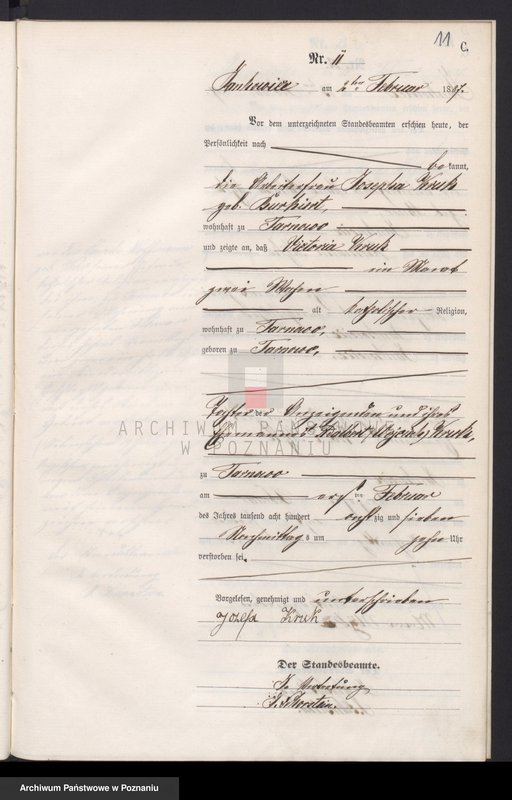 11
C.
Nr. 11
Jankowice am 2ten Februar 1887.
Vor dem unterzeichneten Standesbeamten erschien heute, der
Persönlichkeit nach
bekannt,
die Arbeiterfrau Josepha Kruk
geb. Burkiert,
wohnhaft zu Tarnowo
und zeigte an, daß Victoria Kruk
ein Monat
zwei Wochen
alt katholischer Religion,
wohnhaft zu Tarnowo,
geboren zu Tarnowo,
Tochter der Anzeigenden und ihres
Ehemannes Kruk,
ARCHIWUM PAŃSTWOWE
W POZNANIU
zu Tarnowo
am Februar
des Jahres tausend acht hundert achtzig und sieben
Nachmittags um zehn Uhr
verstorben sei.
Vorgelesen, genehmigt und unterschrieben
Jozefa Kruk
Der Standesbeamte.
In Vertretung
Archiwum Państwowe w Poznaniu